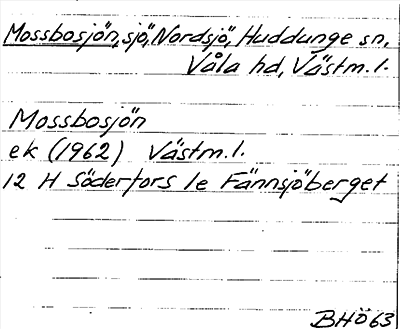 Mossbosjön, sjö, Nordsjö, Huddunge sn,
Våla hd, Västm.l.
Mossbosjön
ek (1962) Västm.l.
12 H Söderfors 1e Fännsjöberget
BHö 63